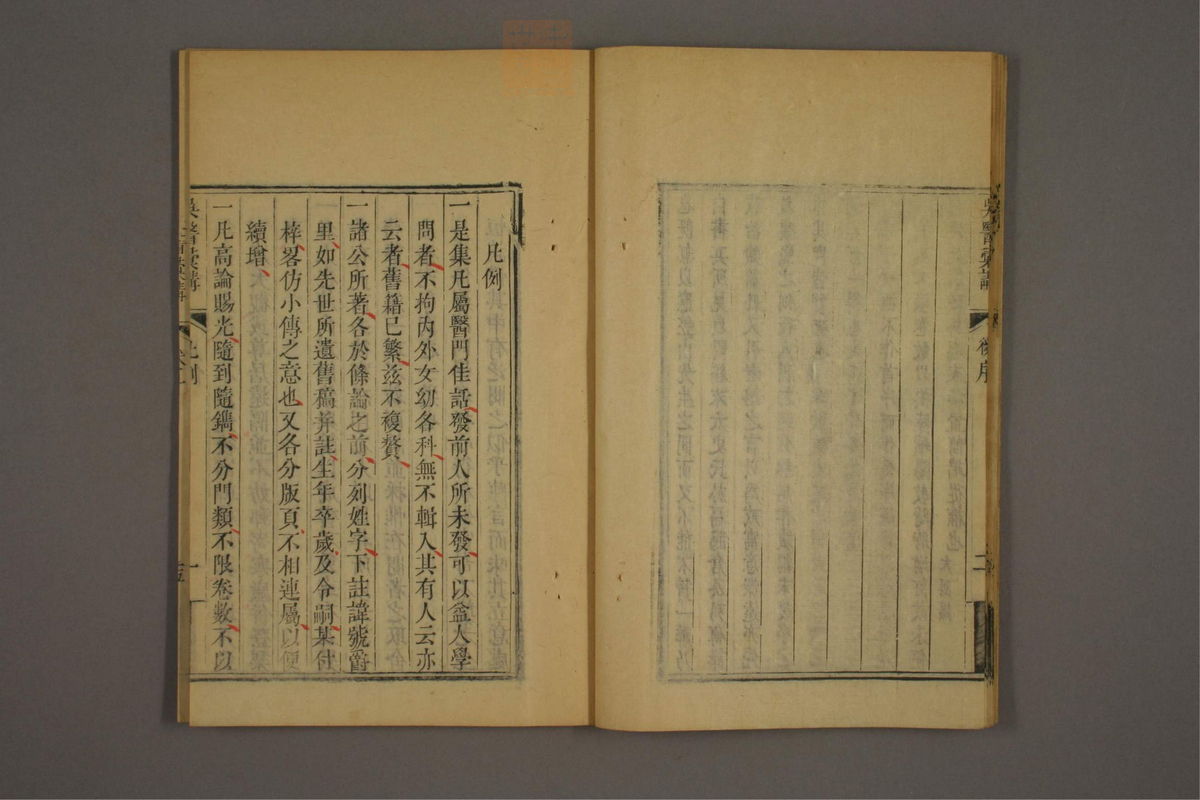 吳醫彙講
後序
二
凡例
一是集凡屬醫門佳話發前人所未發可以益人學
問者不拘內外女幼各科無不輯入其有人云亦
云者舊籍已繁茲不複贅
一諸公所著各於條論之前分列姓字下註諱號爵
里如先世所遺舊稿并註生年卒歲及令嗣某付
梓畧仿小傳之意也又各分版頁不相連屬以便
續增
一凡高論賜光隨到隨鐫不分門類不限卷數不以
吳醫彙講
凡例
一